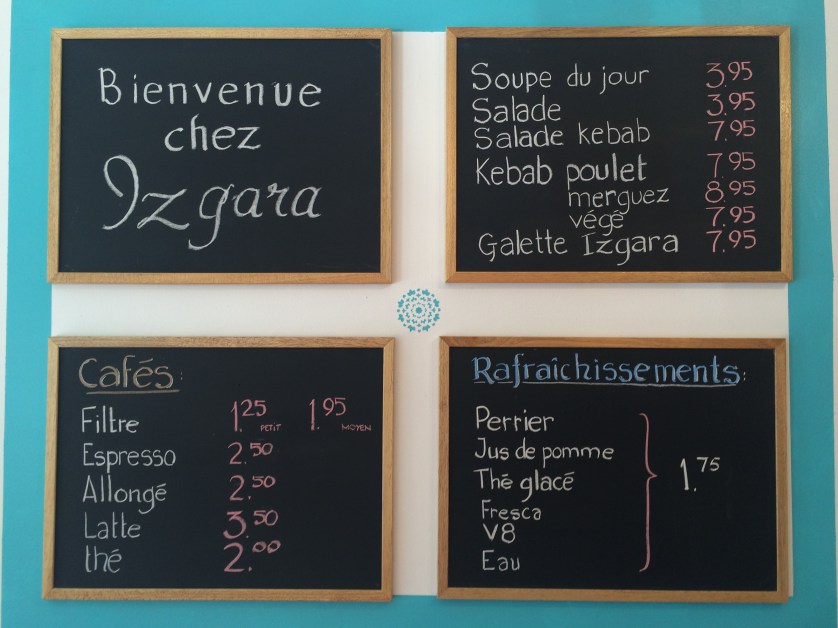 Bienvenue
chez
Izgara
Soupe du jour 3.95
Salade 3.95
Salade kebab 7.95
Kebab poulet 7.95
merguez 8.95
végé 7.95
Galette Izgara 7.95
Cafés:
Filtre 1.25 PETIT 1.95 MOYEN
Espresso 2.50
Allongé 2.50
Latte 3.50
thé 2.00
Rafraîchissements:
Perrier
Jus de pomme
Thé glacé 1.75
Fresca
V8
Eau